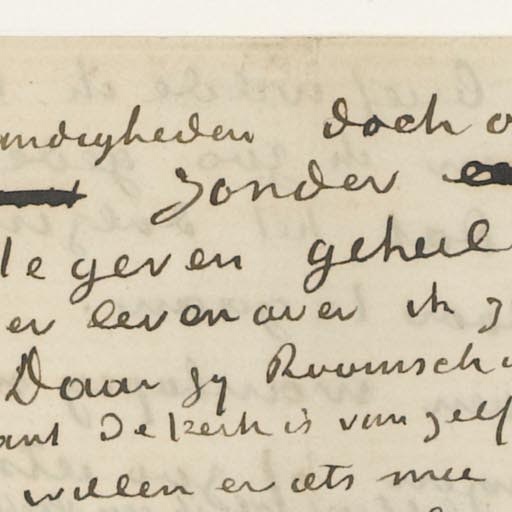 andigheden doch
zonder
te geven geheel
er leven over ik
Daar zy Roomsch
want de kerk is van zelf
willen er iets mee